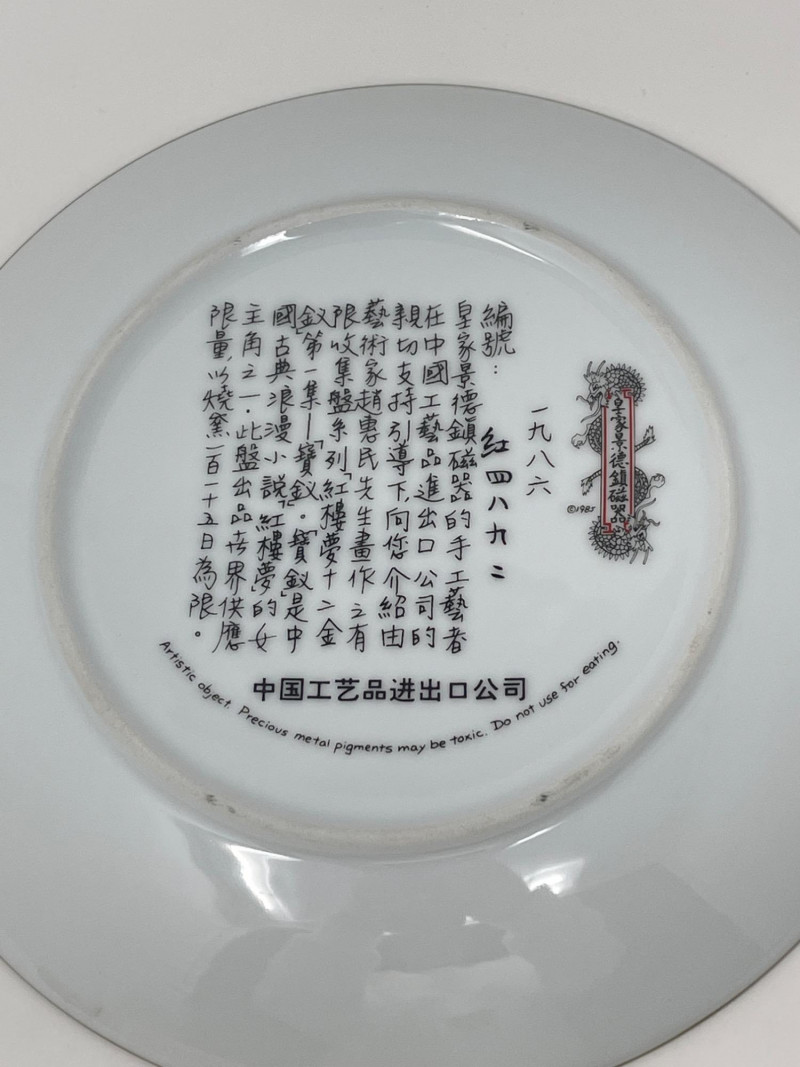 皇家景德鎮磁器
©1985
一九八六
編號：紅四八九二
皇家景德鎮磁器的手工藝者
在中國工藝品進出口公司的
親切支持引導下,向您介紹由
藝術家趙惠民先生畫作之有
限收集盤系列「紅樓夢十二金
釵」第一集—「寶釵」。「寶釵」是中
國古典浪漫小說「紅樓夢」的女
主角之一．此盤出品世界供應
限量,以燒窯一百一十五日為限。
中国工艺品进出口公司
Artistic object. Precious metal pigments may be toxic. Do not use for eating.